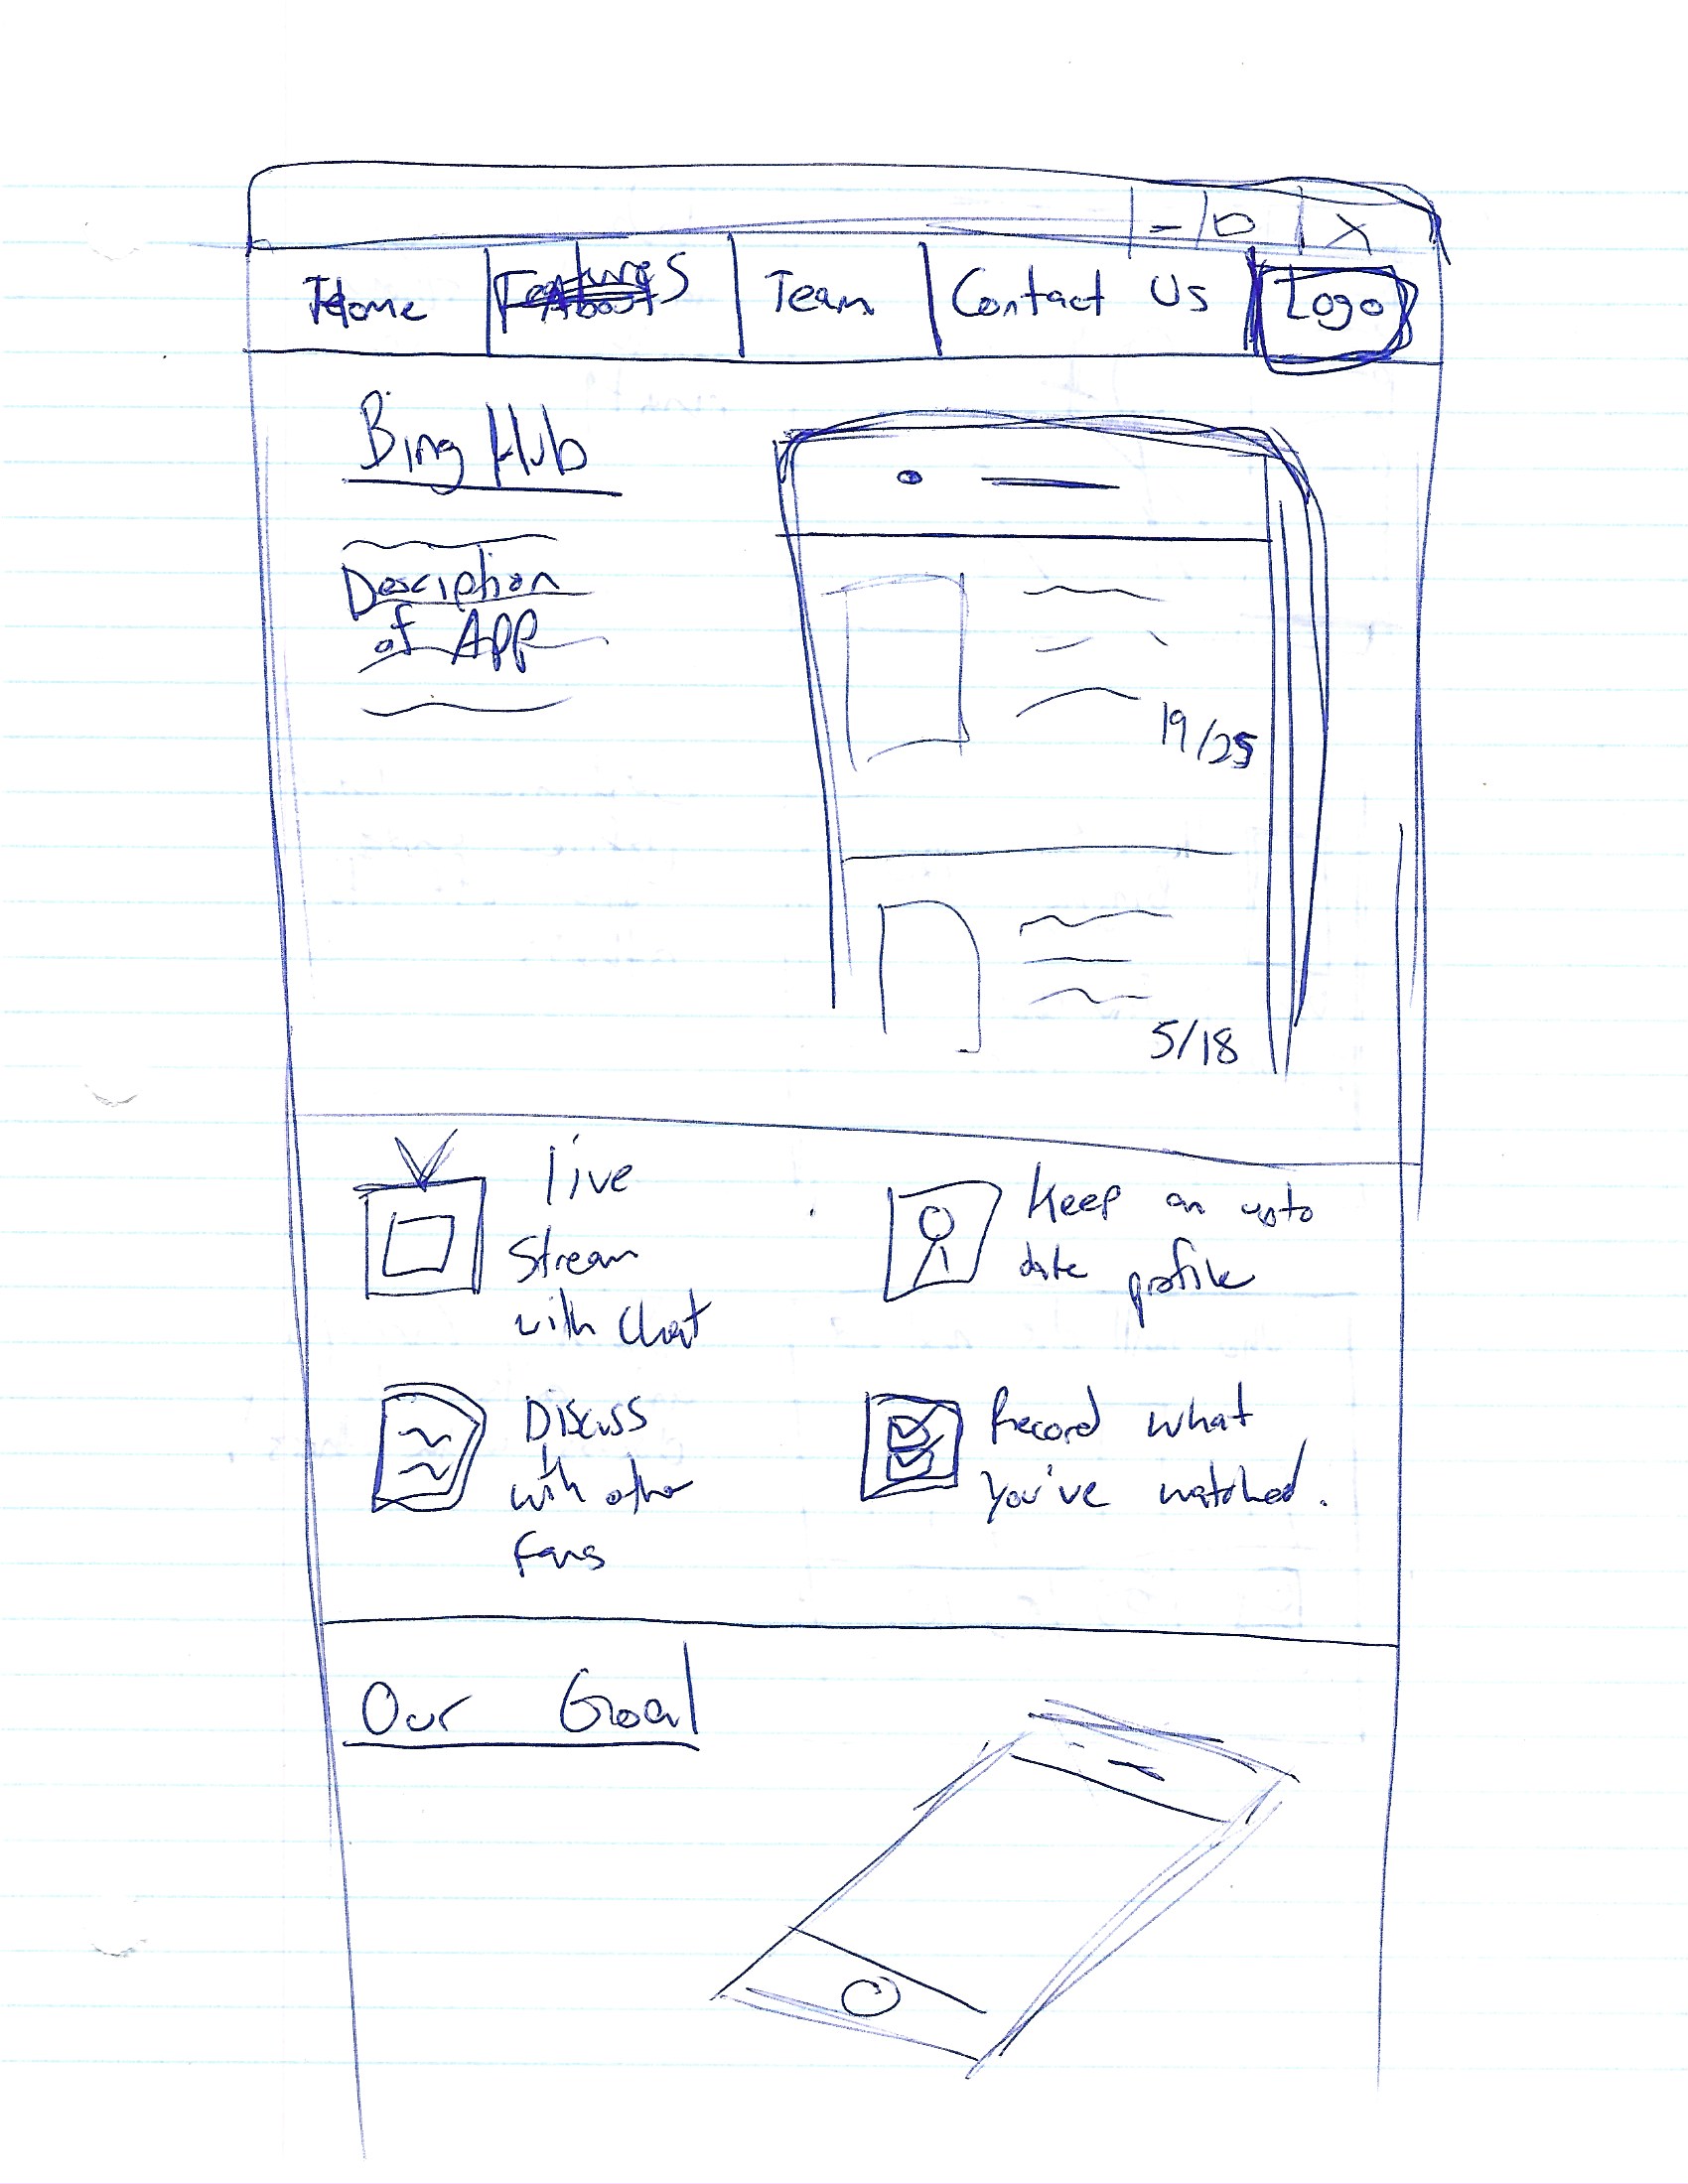 Home
Features
Team
Contact Us
Logo
Bing Hub
Desciption
of App
19/25
5/18
live
Stream
with chat
Keep an upto
date profile
Discuss
with other
fans
Record what
you've watched.
Our Goal